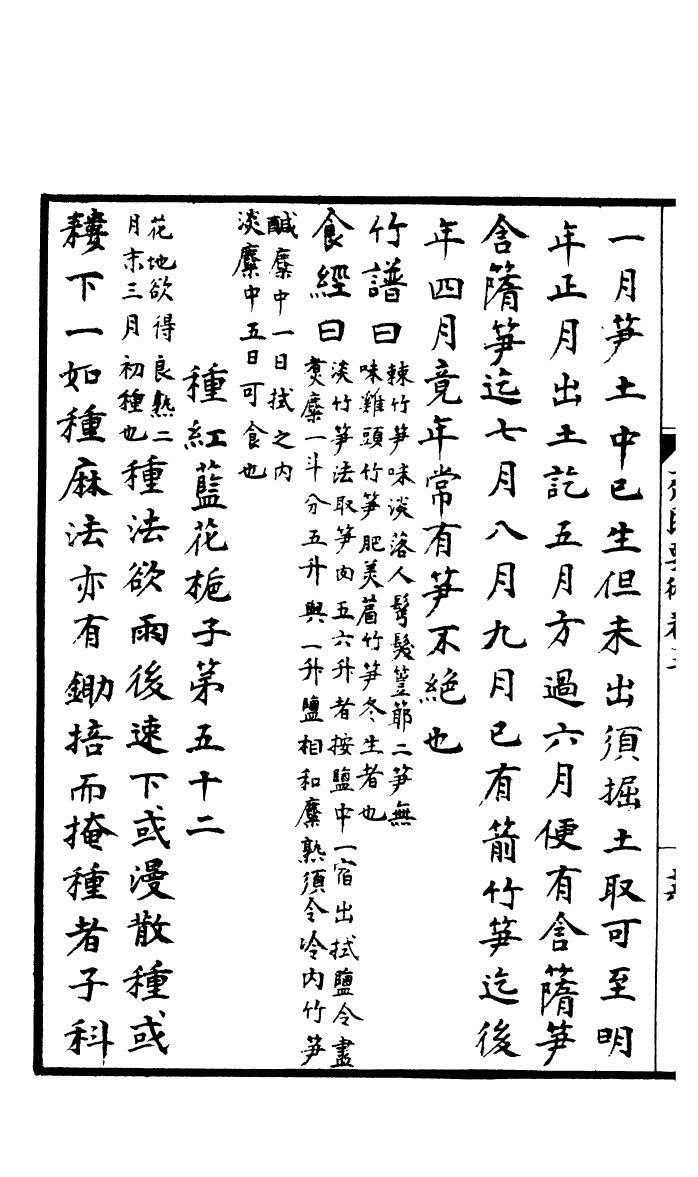 一月笋土中已生但未出須掘土取可至明
年正月出土訖五月方過六月便有含䔺笋
含䔺笋迄七月八月九月已有箭竹笋迄後
年四月竟年常有笋不絶也
竹譜曰
棘竹笋味淡落人鬢髮篁節二笋無
味雞頭竹笋肥美竹笋冬生者也
食經曰
淡竹笋法取笋肉五六升者按鹽中一宿出拭鹽令盡
煑糜一斗分五升與一升鹽相和糜熟須令冷内竹笋
醎糜中一日拭之内
淡糜中五日可食也
種紅藍花梔子第五十二
花地欲得良熟二
月末三月初種也
種法欲雨後速下或漫散種或
耬下一如種麻法亦有鋤掊而掩種者子科